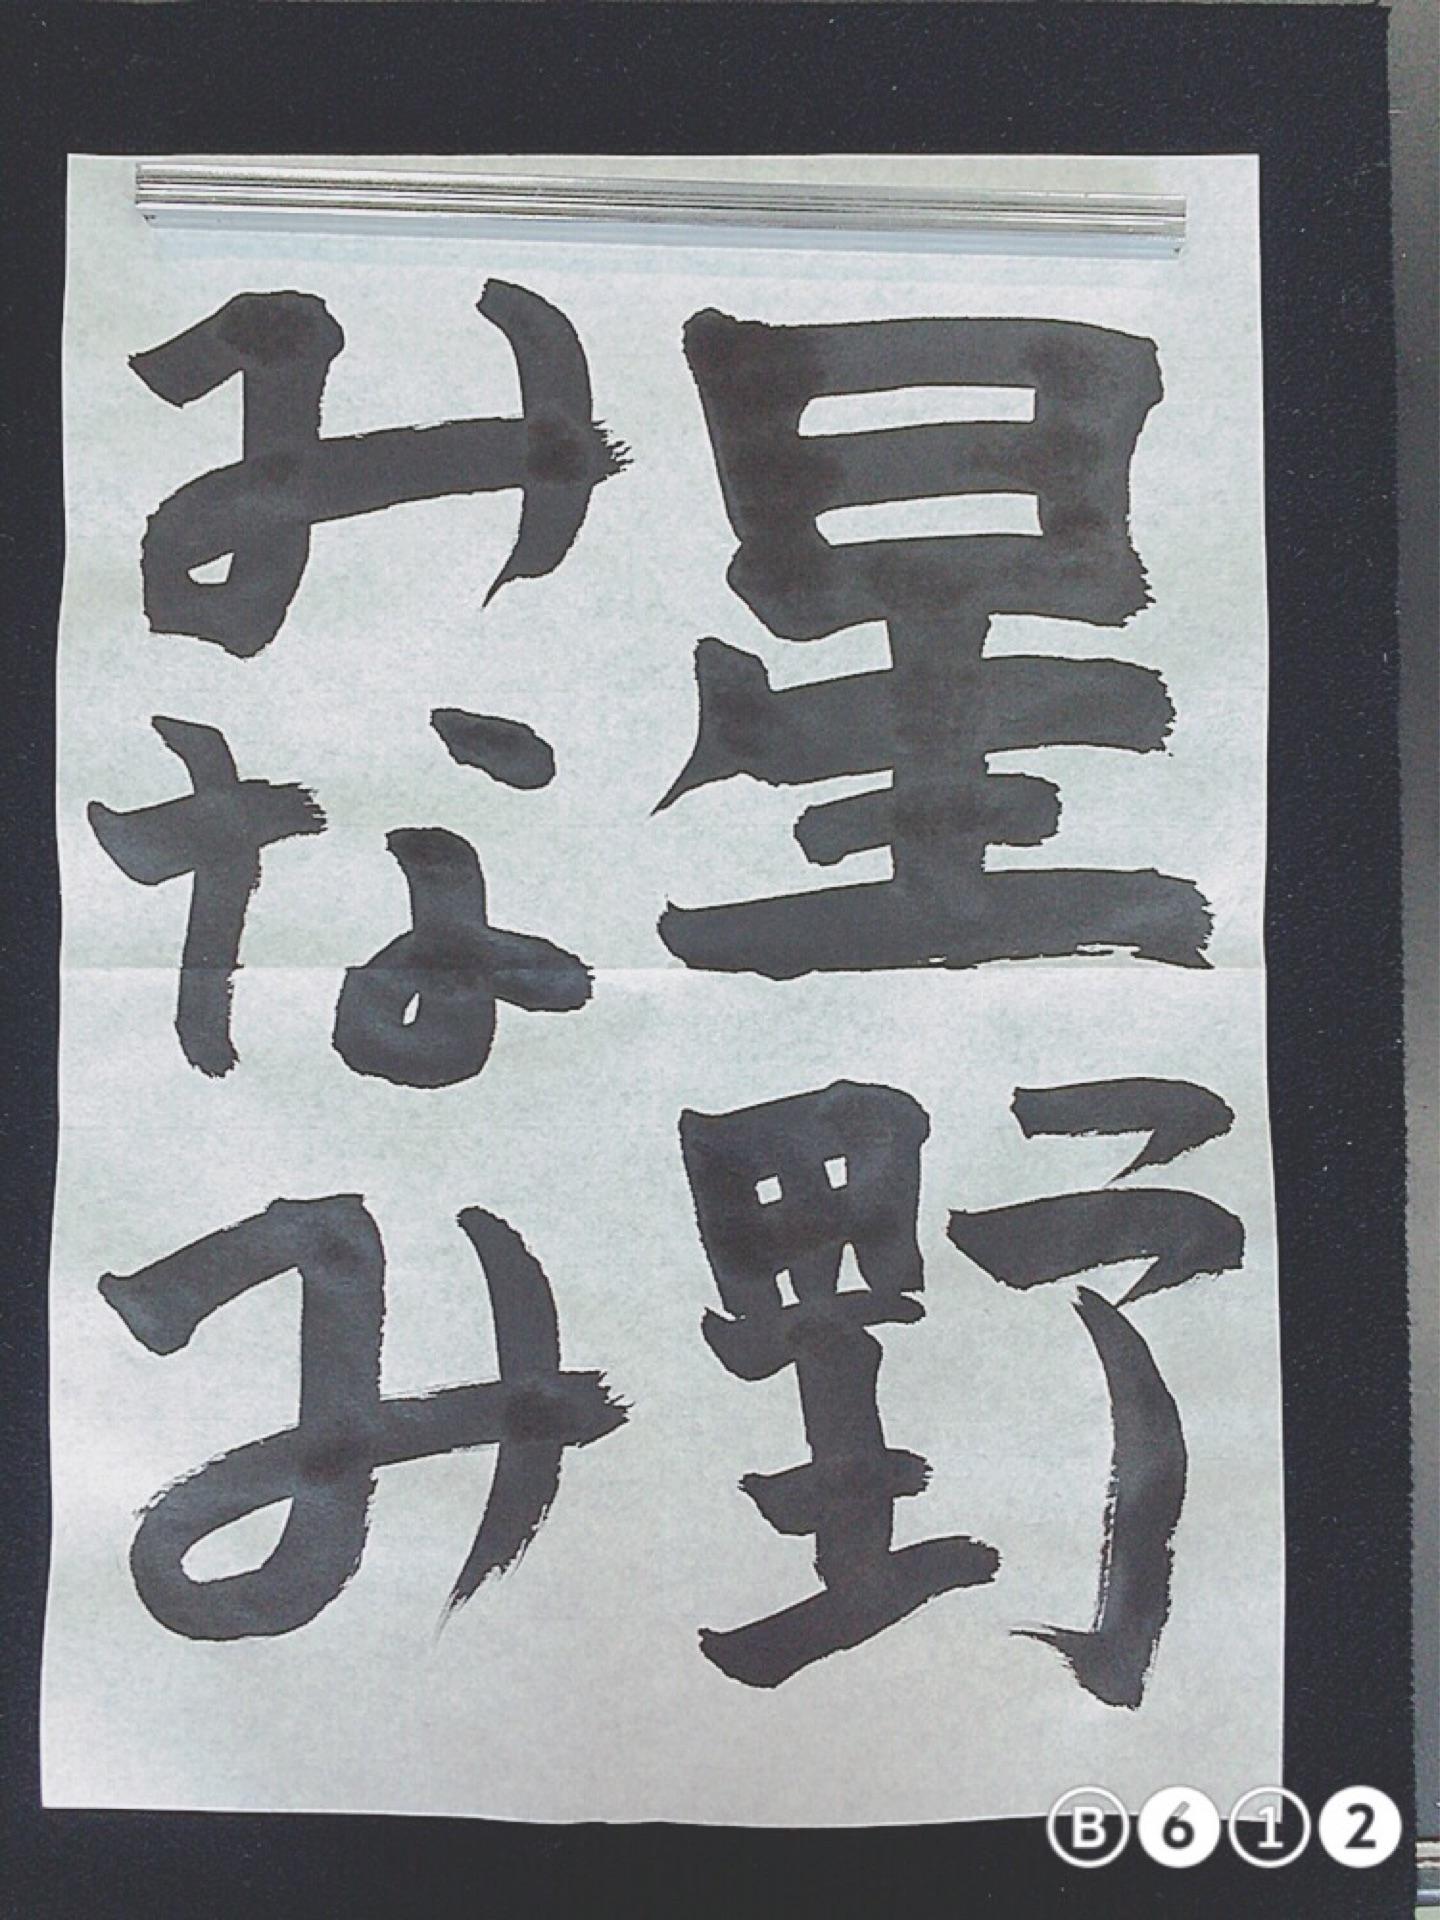 星野
みなみ
B612